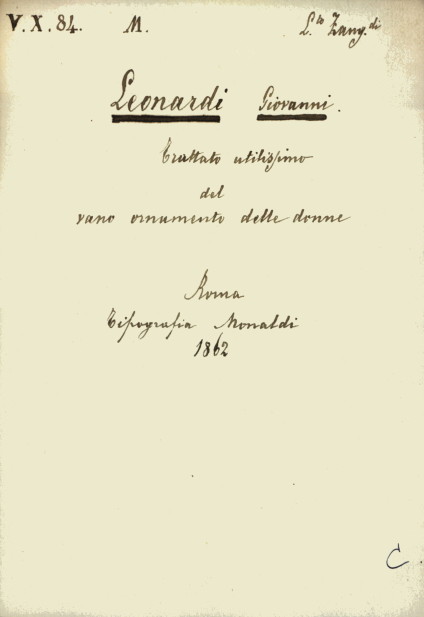 V. X. 84. M. L.to Zang.di
Leonardi Giovanni.
Trattato utilissimo
del
vano ornamento delle donne
Roma
Tipografia Monaldi
1862
C